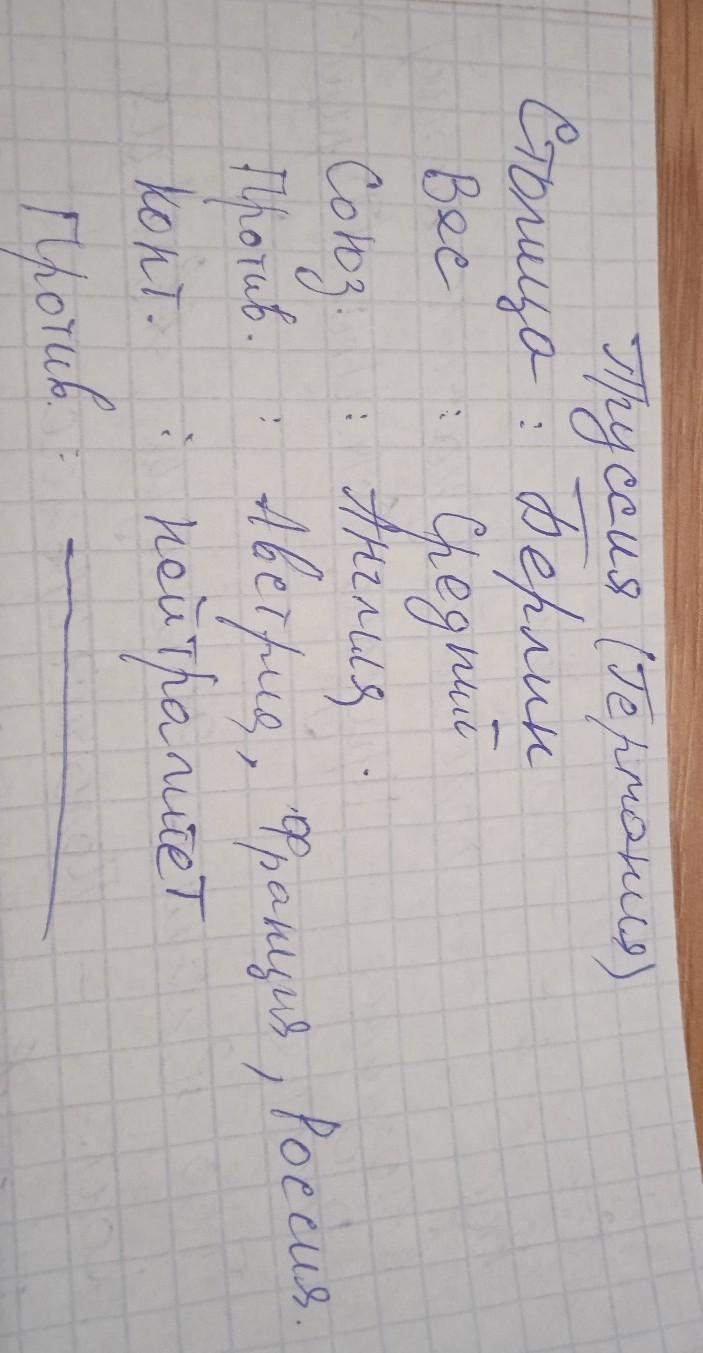 Пруссия (Германия)
Столица : Берлин
Вес : Средний
Союз. : Англия.
Против. : Австрия, Франция, Россия.
Конт. : нейтралитет
Против. : ———